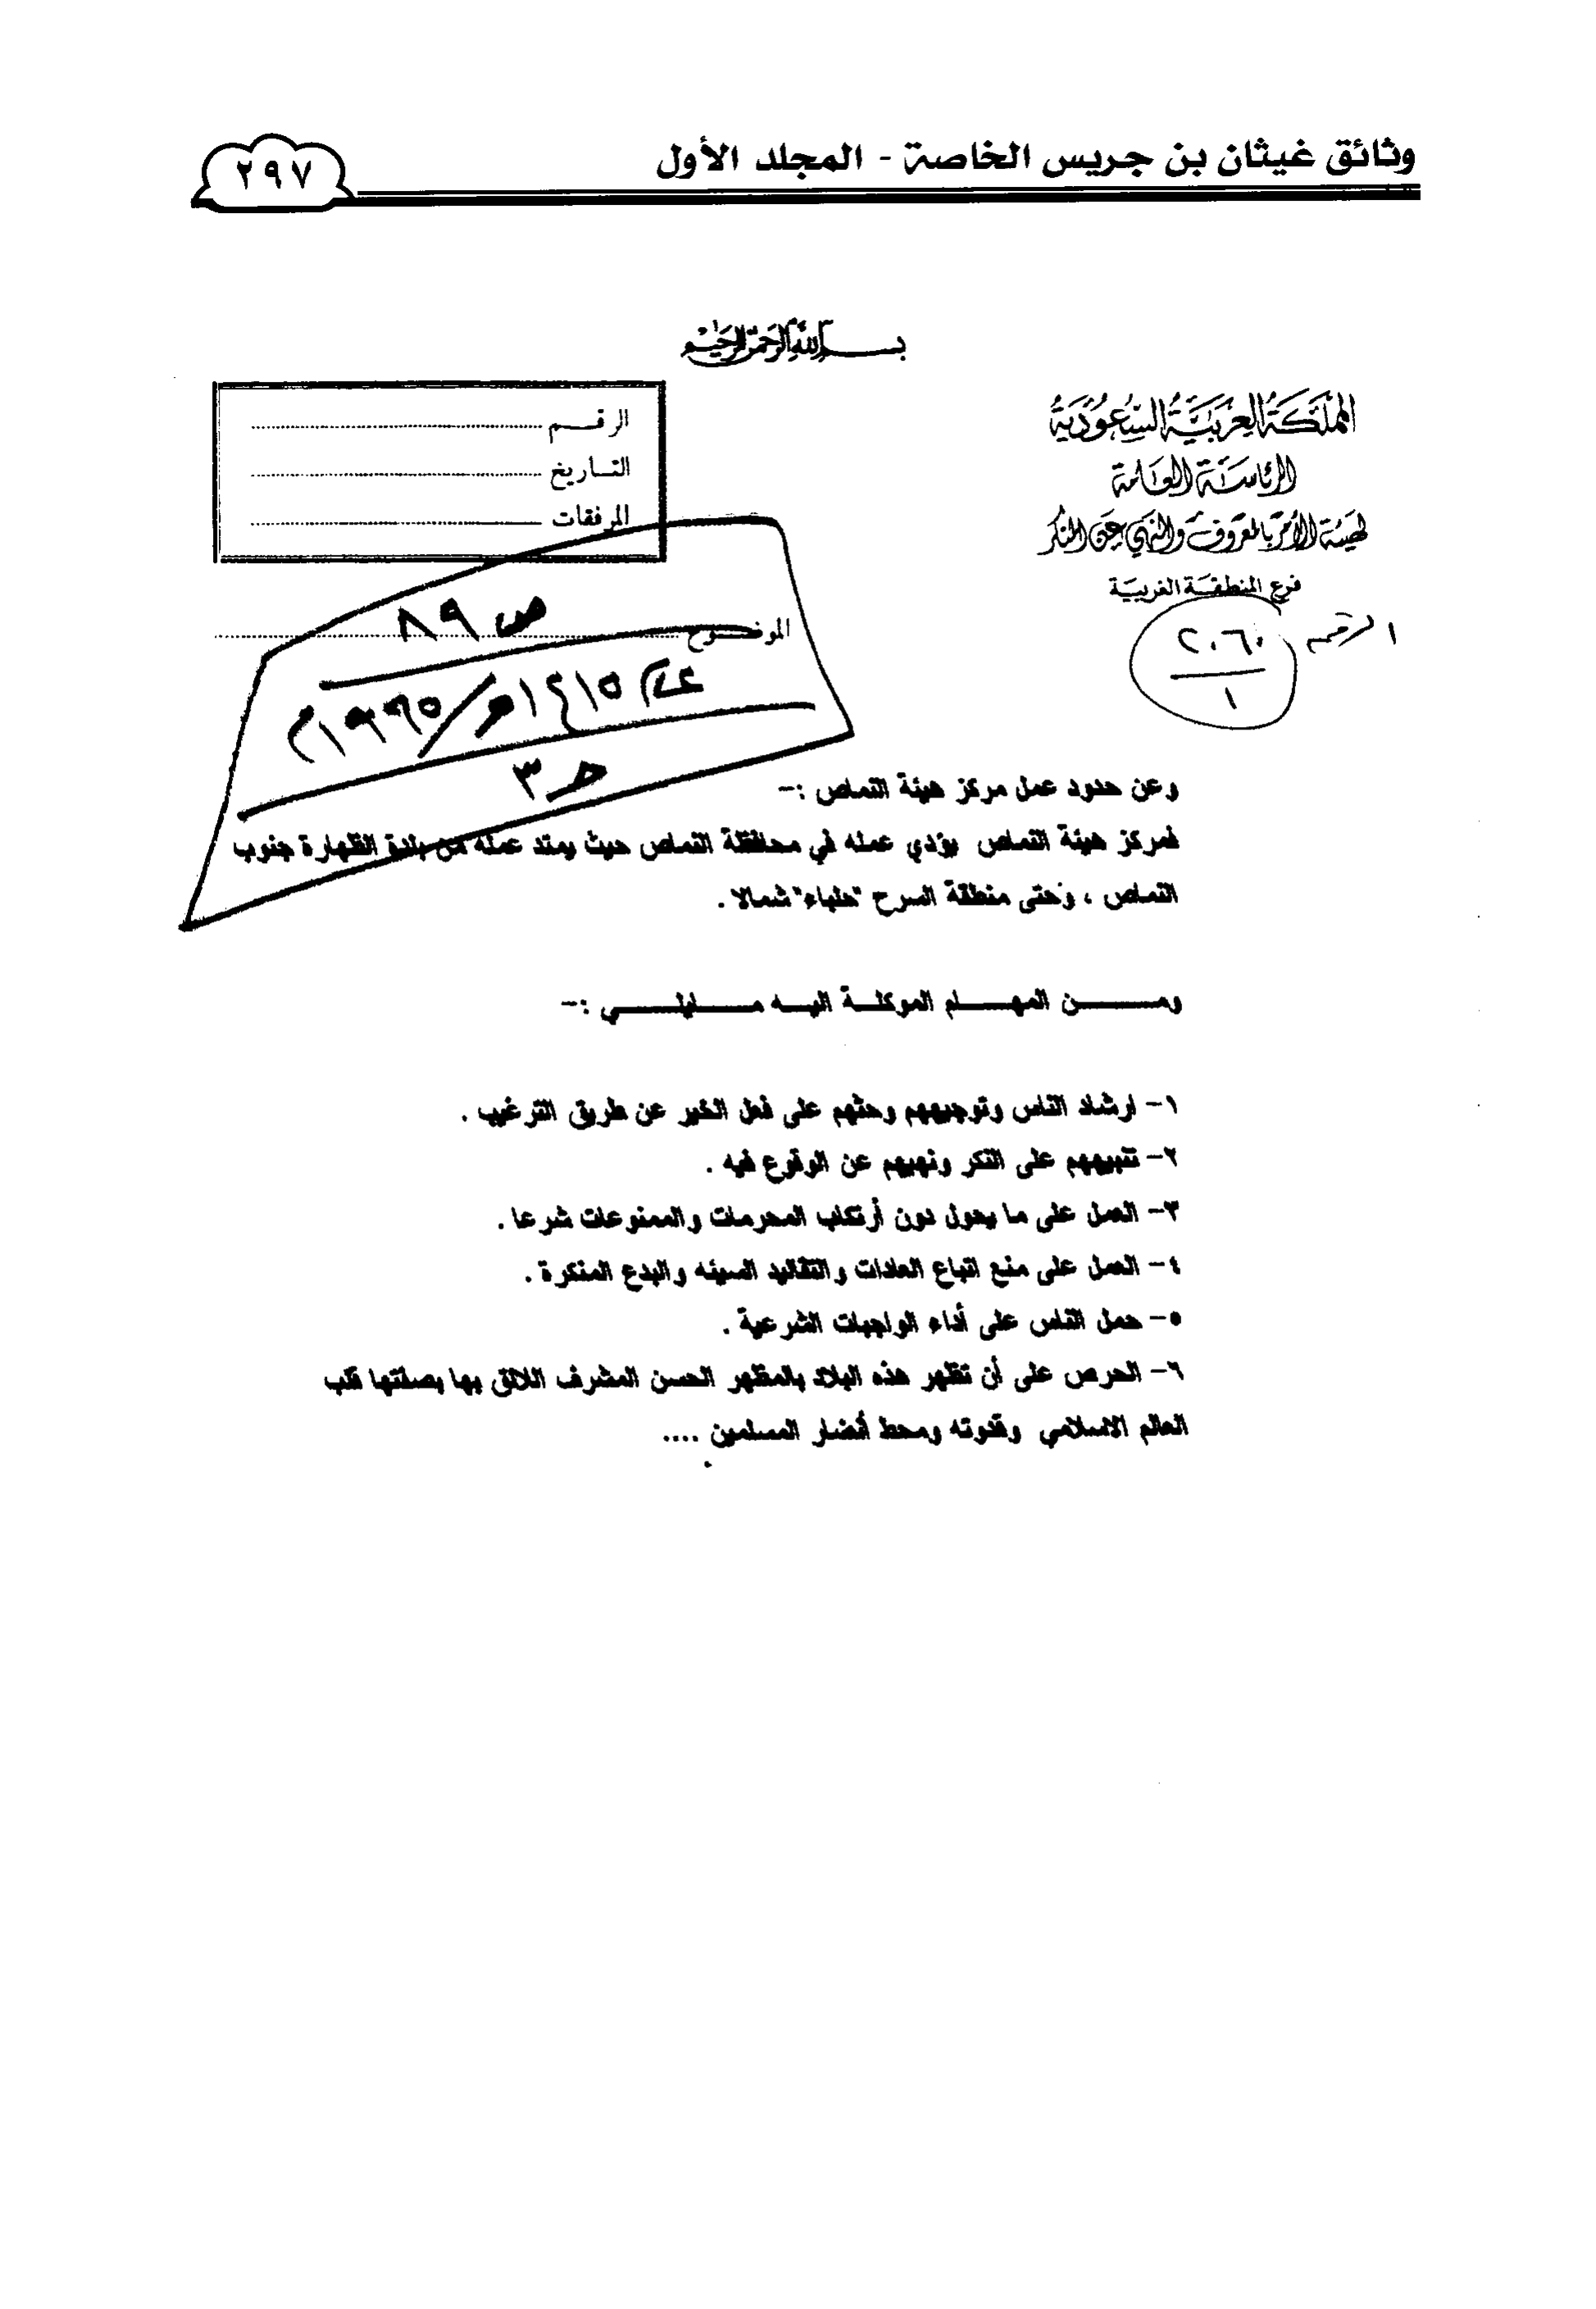 وثائق غيثان بن جريس الخاصة - المجلد الأول
٢٩٧
بسم الله الرحمن الرحيم
المملكة العربية السعودية
الرئاسة العامة
لهيئة الأمر بالمعروف والنهي عن المنكر
فرع المنطقة الغربية
الرقم ٢٠٦٠
١
الرقم
التاريخ
المرفقات
الموضوع
ص ٨٩
عام ١٤١٥هـ/١٩٩٥م
حـ ٣
وعن حدود عمل مركز هيئة النماص :-
فمركز هيئة النماص يؤدي عمله في محافظة النماص حيث يمتد عمله من بلدة الظهارة جنوب
النماص ، وحتى منطقة السرح "حلباء" شمالا .
ومن المهام الموكلة اليه مايلي :-
١- ارشاد الناس وتوجيههم وحثهم على فعل الخير عن طريق الترغيب .
٢- تنبيههم على النكر ونهيهم عن الوقوع فيه .
٣- العمل على ما يحول دون أرتكاب المحرمات والممنوعات شرعا .
٤- العمل على منع اتباع العادات والتقاليد السيئه والبدع المنكرة .
٥- حمل الناس على أداء الواجبات الشرعية .
٦- الحرص على أن تظهر هذه البلاد بالمظهر الحسن المشرف اللائق بها بصفتها قلب
العالم الاسلامي وقدوته ومحط أنضار المسلمين ....